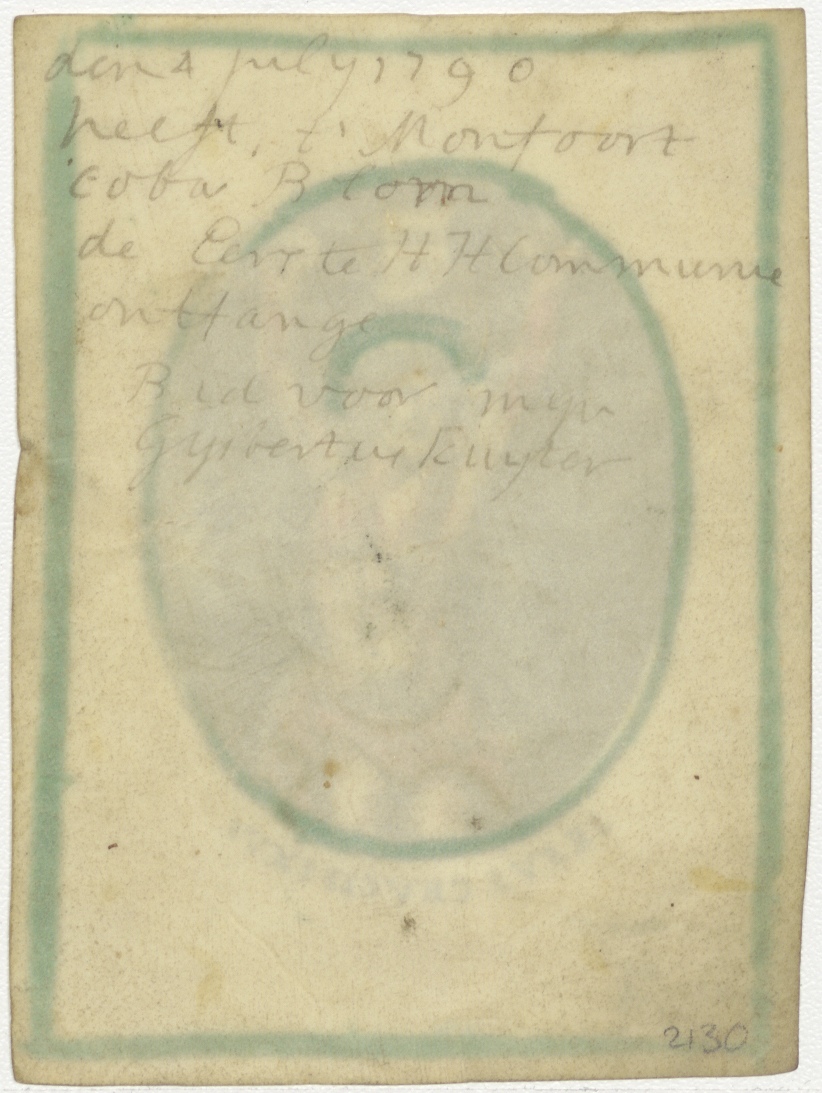 den 4 july 1790
heeft, t' Monfoort
coba Blom
de Eerste HH Communie
onttange
Bid voor mijn
Gysbertus Kuyter
2130